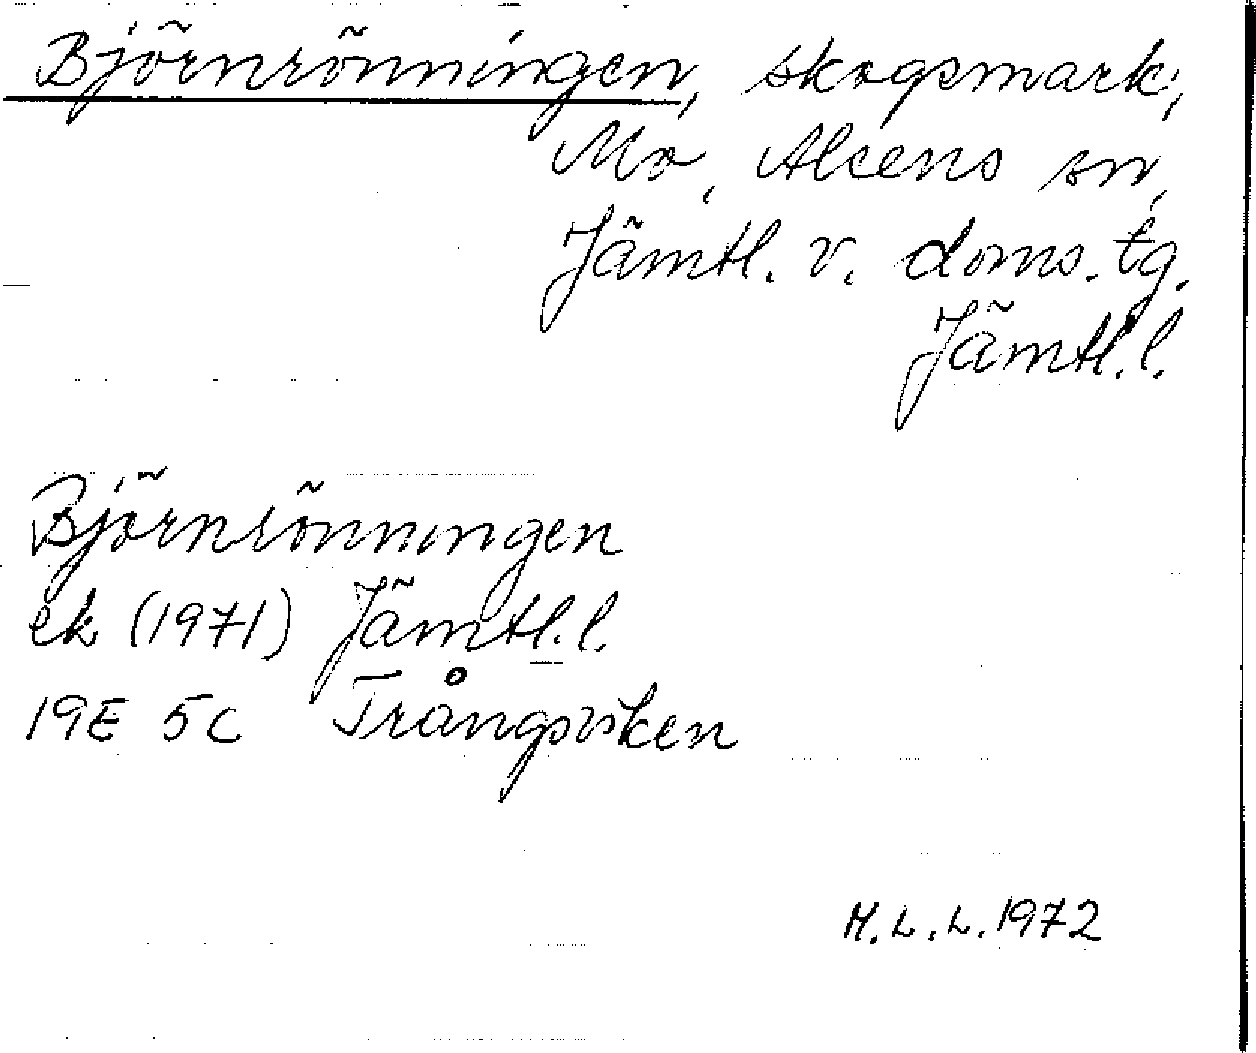 Björnrönningen, skogsmark,
Mo, Alsens sn,
Jämtl. v. doms. tg.
Jämtl. l.
Björnrönningen
ek (1971) Jämtl. l.
19E 5c Trångsviken
M.L.L. 1972